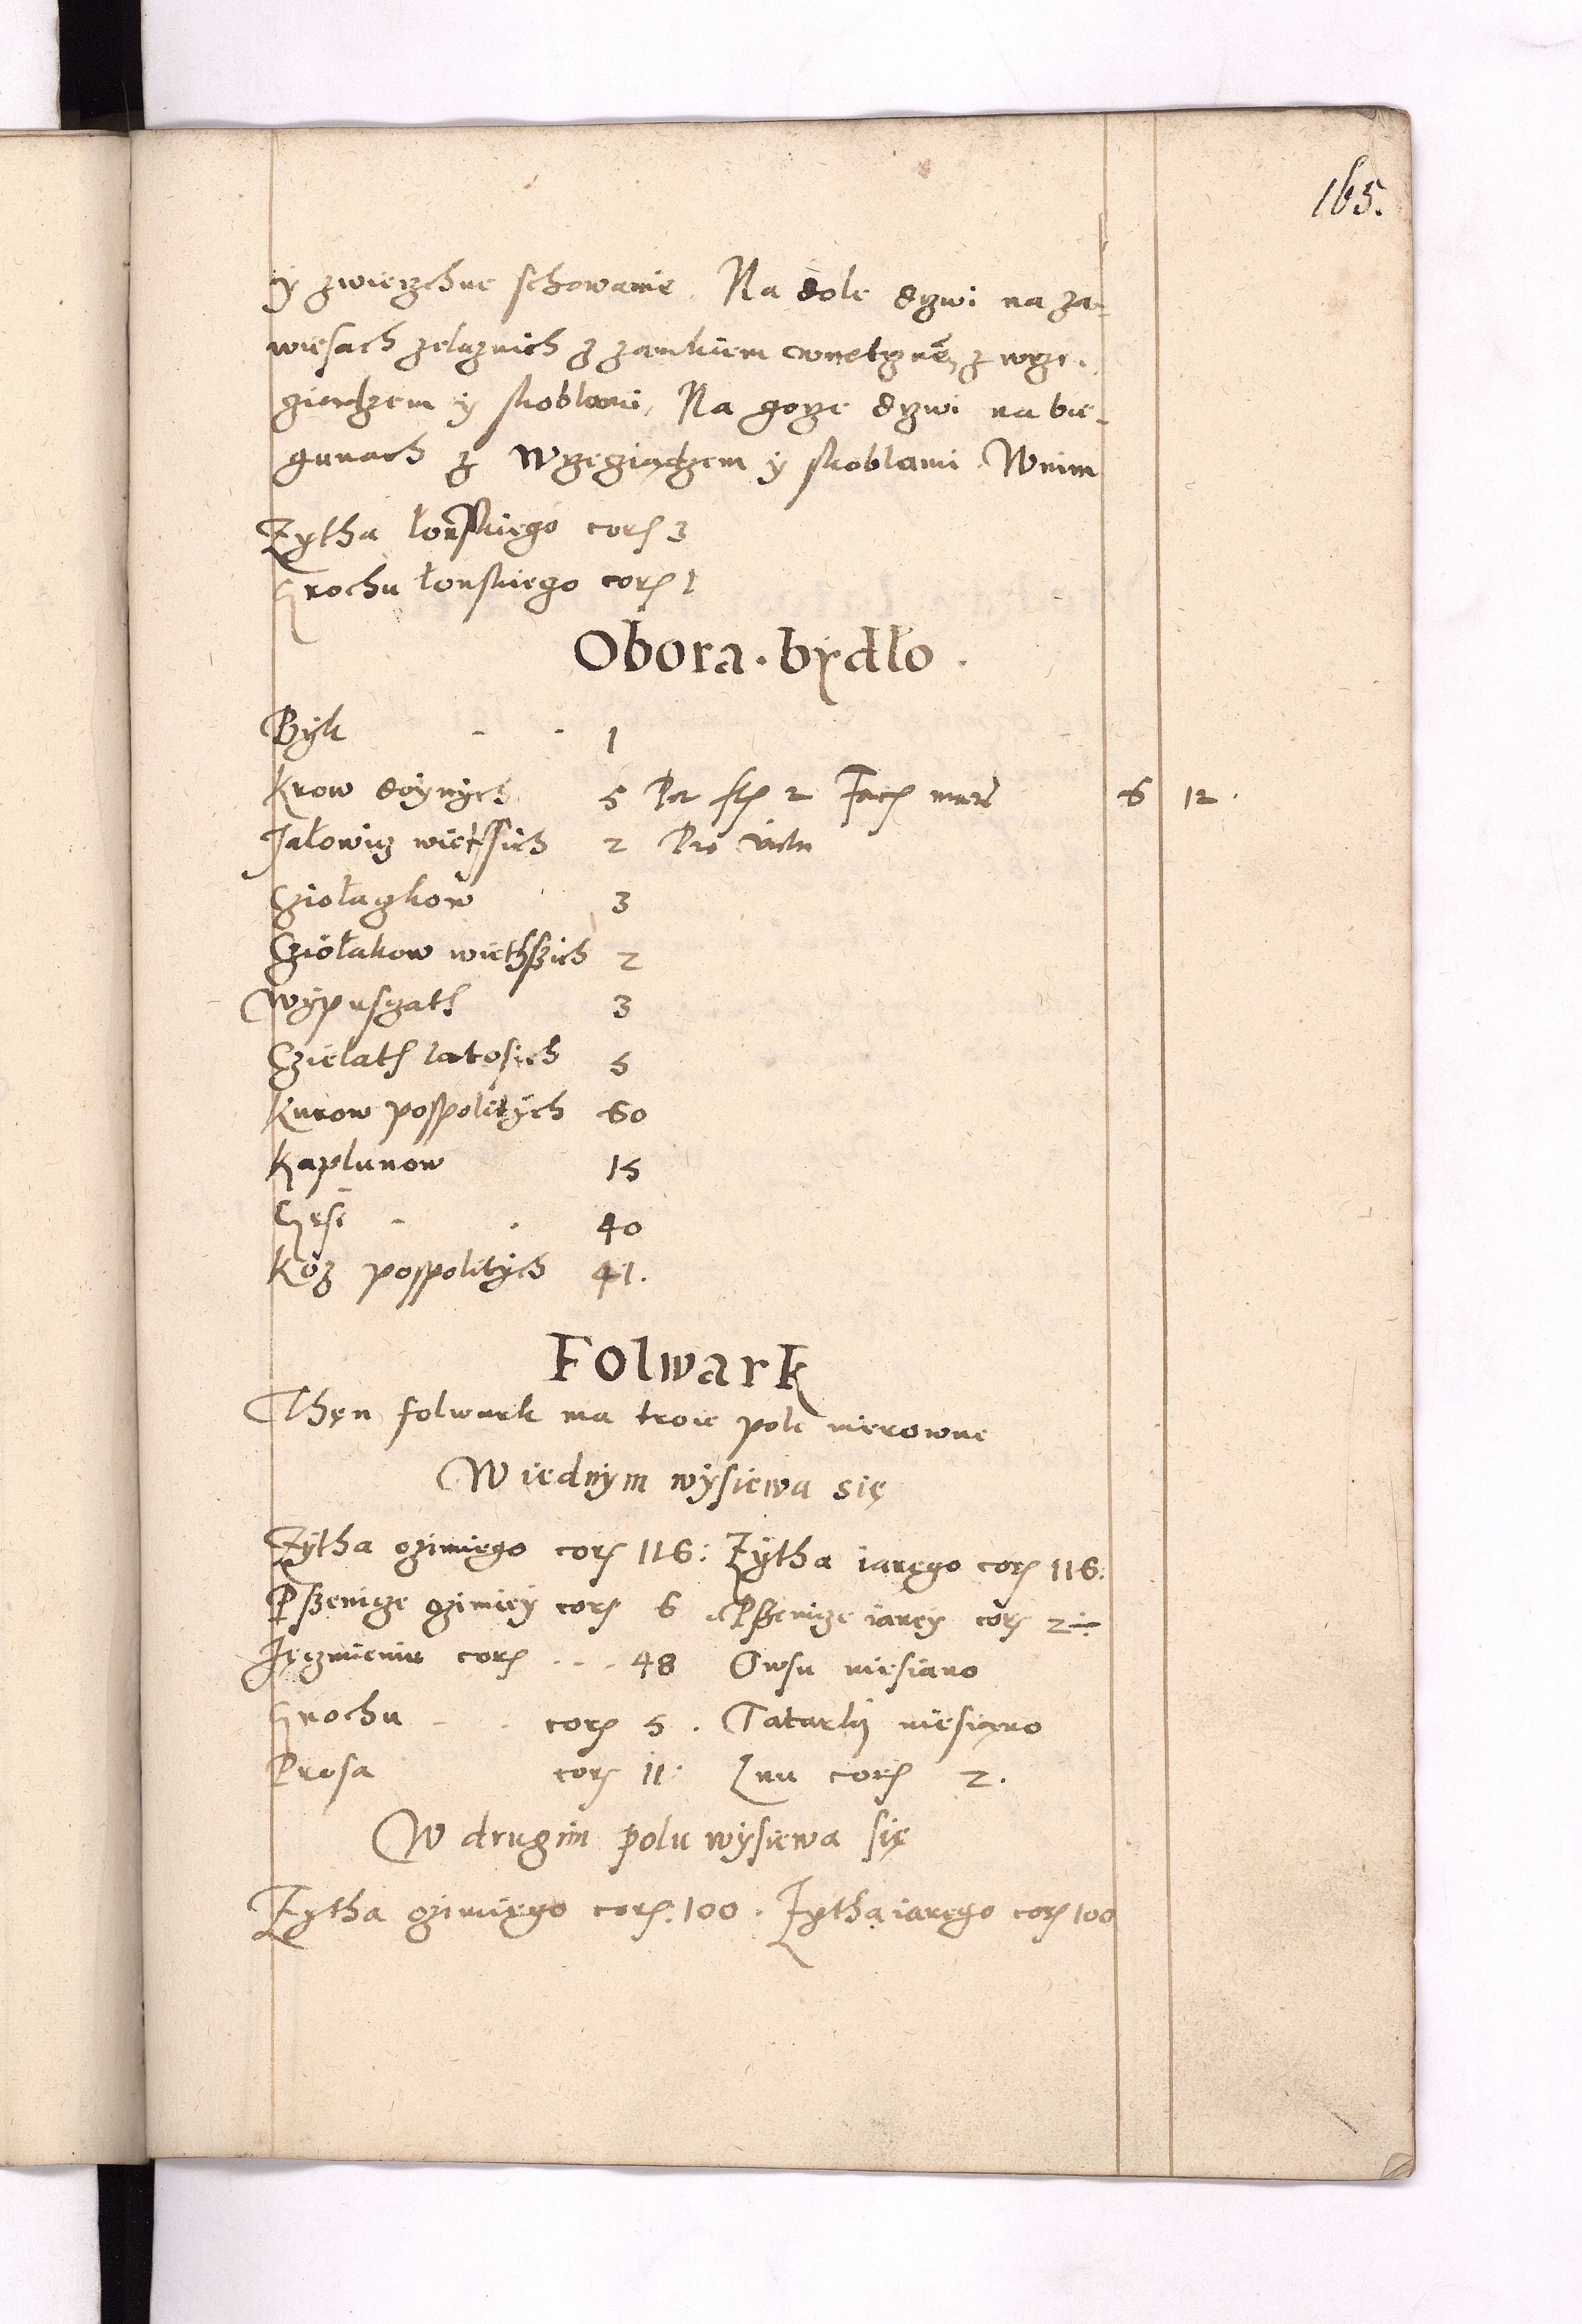 165.
y zwierzchne schowanie. Na dole drzwi na za-
wiesach zelaznich z zamkiem wnetrznem, z wrze-
ziendzem y skoblami, Na gorze drzwi na bie-
gunach z Wrzeziądzem y skoblami. Wnim
Zytha łonskiego corˢ 3
Grochu łonskiego corˢ 1
Obora. bydło.
Byk - - 1
Krow doynych 5 Per flˢ 2 Facˢ mrˢ 6 12.
Jałowicz wietssich 2 Pro victu
Cziołaczkow 3
Cziołakow wiethszich 2
Wypusczath 3
Czielath latosich 5
Kurow pospolitych 60
Kapłunow 15
Gęsi - . 40
Koz pospolitych 41.
Folwark
Thęn folwark ma troie pole nierowne
W iednym wysiewa się
Zytha ozimiego corˢ 116: Zytha iarego corˢ 116:
Pszenicze ozimiey corˢ 6. Pszenicze iarey corˢ 2÷
Jęczmieniu corˢ - - - 48 Owsu niesiano
Grochu - . corˢ 5. Tatarky niesiano
Prosa corˢ 11: Lnu corˢ 2.
W drugim polu wysiewa się
Zytha ozimiego corˢ. 100. Zytha iarego corˢ 100